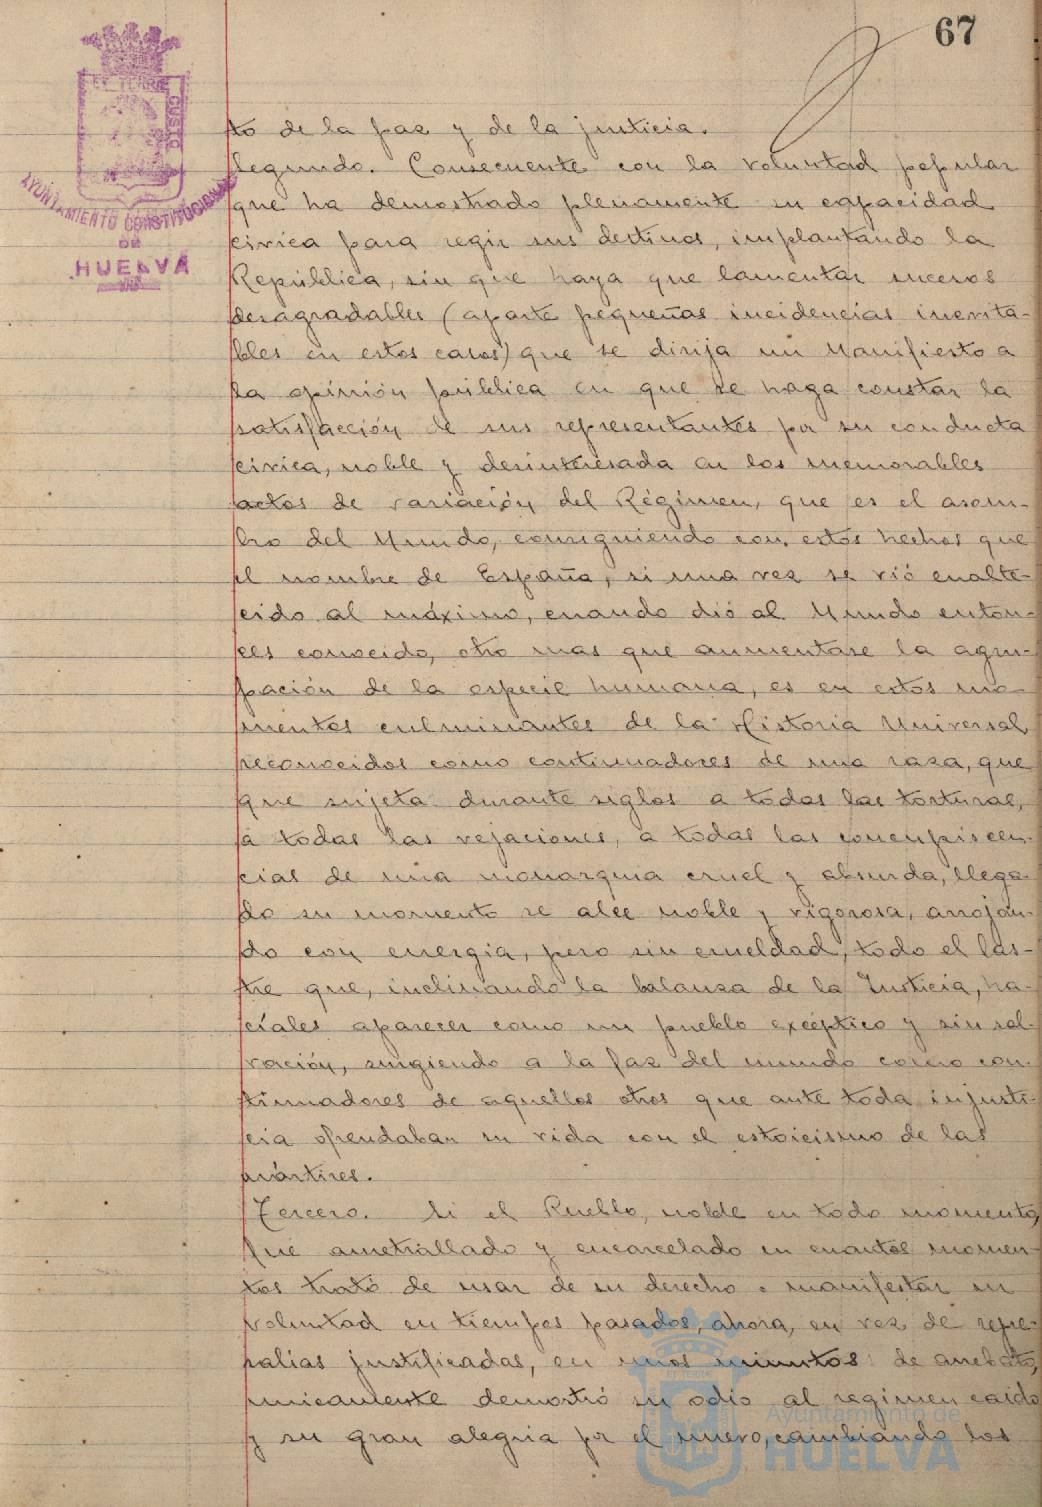 67
ET TERRÆ CUSTO
AYUNTAMIENTO CONSTITUCIONAL
DE
HUELVA
to de la paz y de la justicia.
Segundo. Consecuente con la voluntad popular
que ha demostrado plenamente su capacidad
cívica para regir sus destinos, implantando la
República, sin que haya que lamentar sucesos
desagradables (aparte pequeñas incidencias inevita-
bles en estos casos) que se dirija un Manifiesto a
la opinión pública en que se haga constar la
satisfacción de sus representantes por su conducta
cívica, noble y desinteresada en los memorables
actos de variación del Régimen, que es el asom-
bro del Mundo, consiguiendo con estos hechos que
el nombre de España, si una vez se vió enalte-
cido al máximo, cuando dió al Mundo enton-
ces conocido, otro mas que aumentase la agru-
pación de la especie humana, es en estos mo-
mentos culminantes de la Historia Universal
reconocidos como continuadores de una raza, que
que sujeta durante siglos a todas las torturas,
á todas las vejaciones, a todas las concupiscen-
cias de una monarquia cruel y absurda, llega-
do su momento se alce noble y vigorosa, arroján-
do con energia, pero sin crueldad, todo el las-
tre que, inclinando la balanza de la Justicia, ha-
cíales aparecer como un pueblo excéptico y sin sal-
vación, surgiendo a la faz del mundo como con-
tinuadores de aquellos otros que ante toda injusti-
cia ofrendaban su vida con el estoicismo de los
mártires.
Tercero. Si el Pueblo, noble en todo momento,
fué ametrallado y encarcelado en cuantos momen-
tos trató de usar de su derecho o manifestar su
voluntad en tiempos pasados, ahora, en vez de repre-
salias justificadas, en unos minutos de arrebato,
unicamente demostró su odio al regimen caido
y su gran alegria por el nuevo, cambiando los
Ayuntamiento de
HUELVA